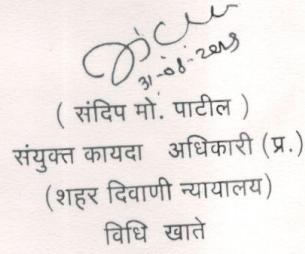 31-08-2019
( संदिप मो. पाटील )
संयुक्त कायदा अधिकारी (प्र.)
(शहर दिवाणी न्यायालय)
विधि खाते